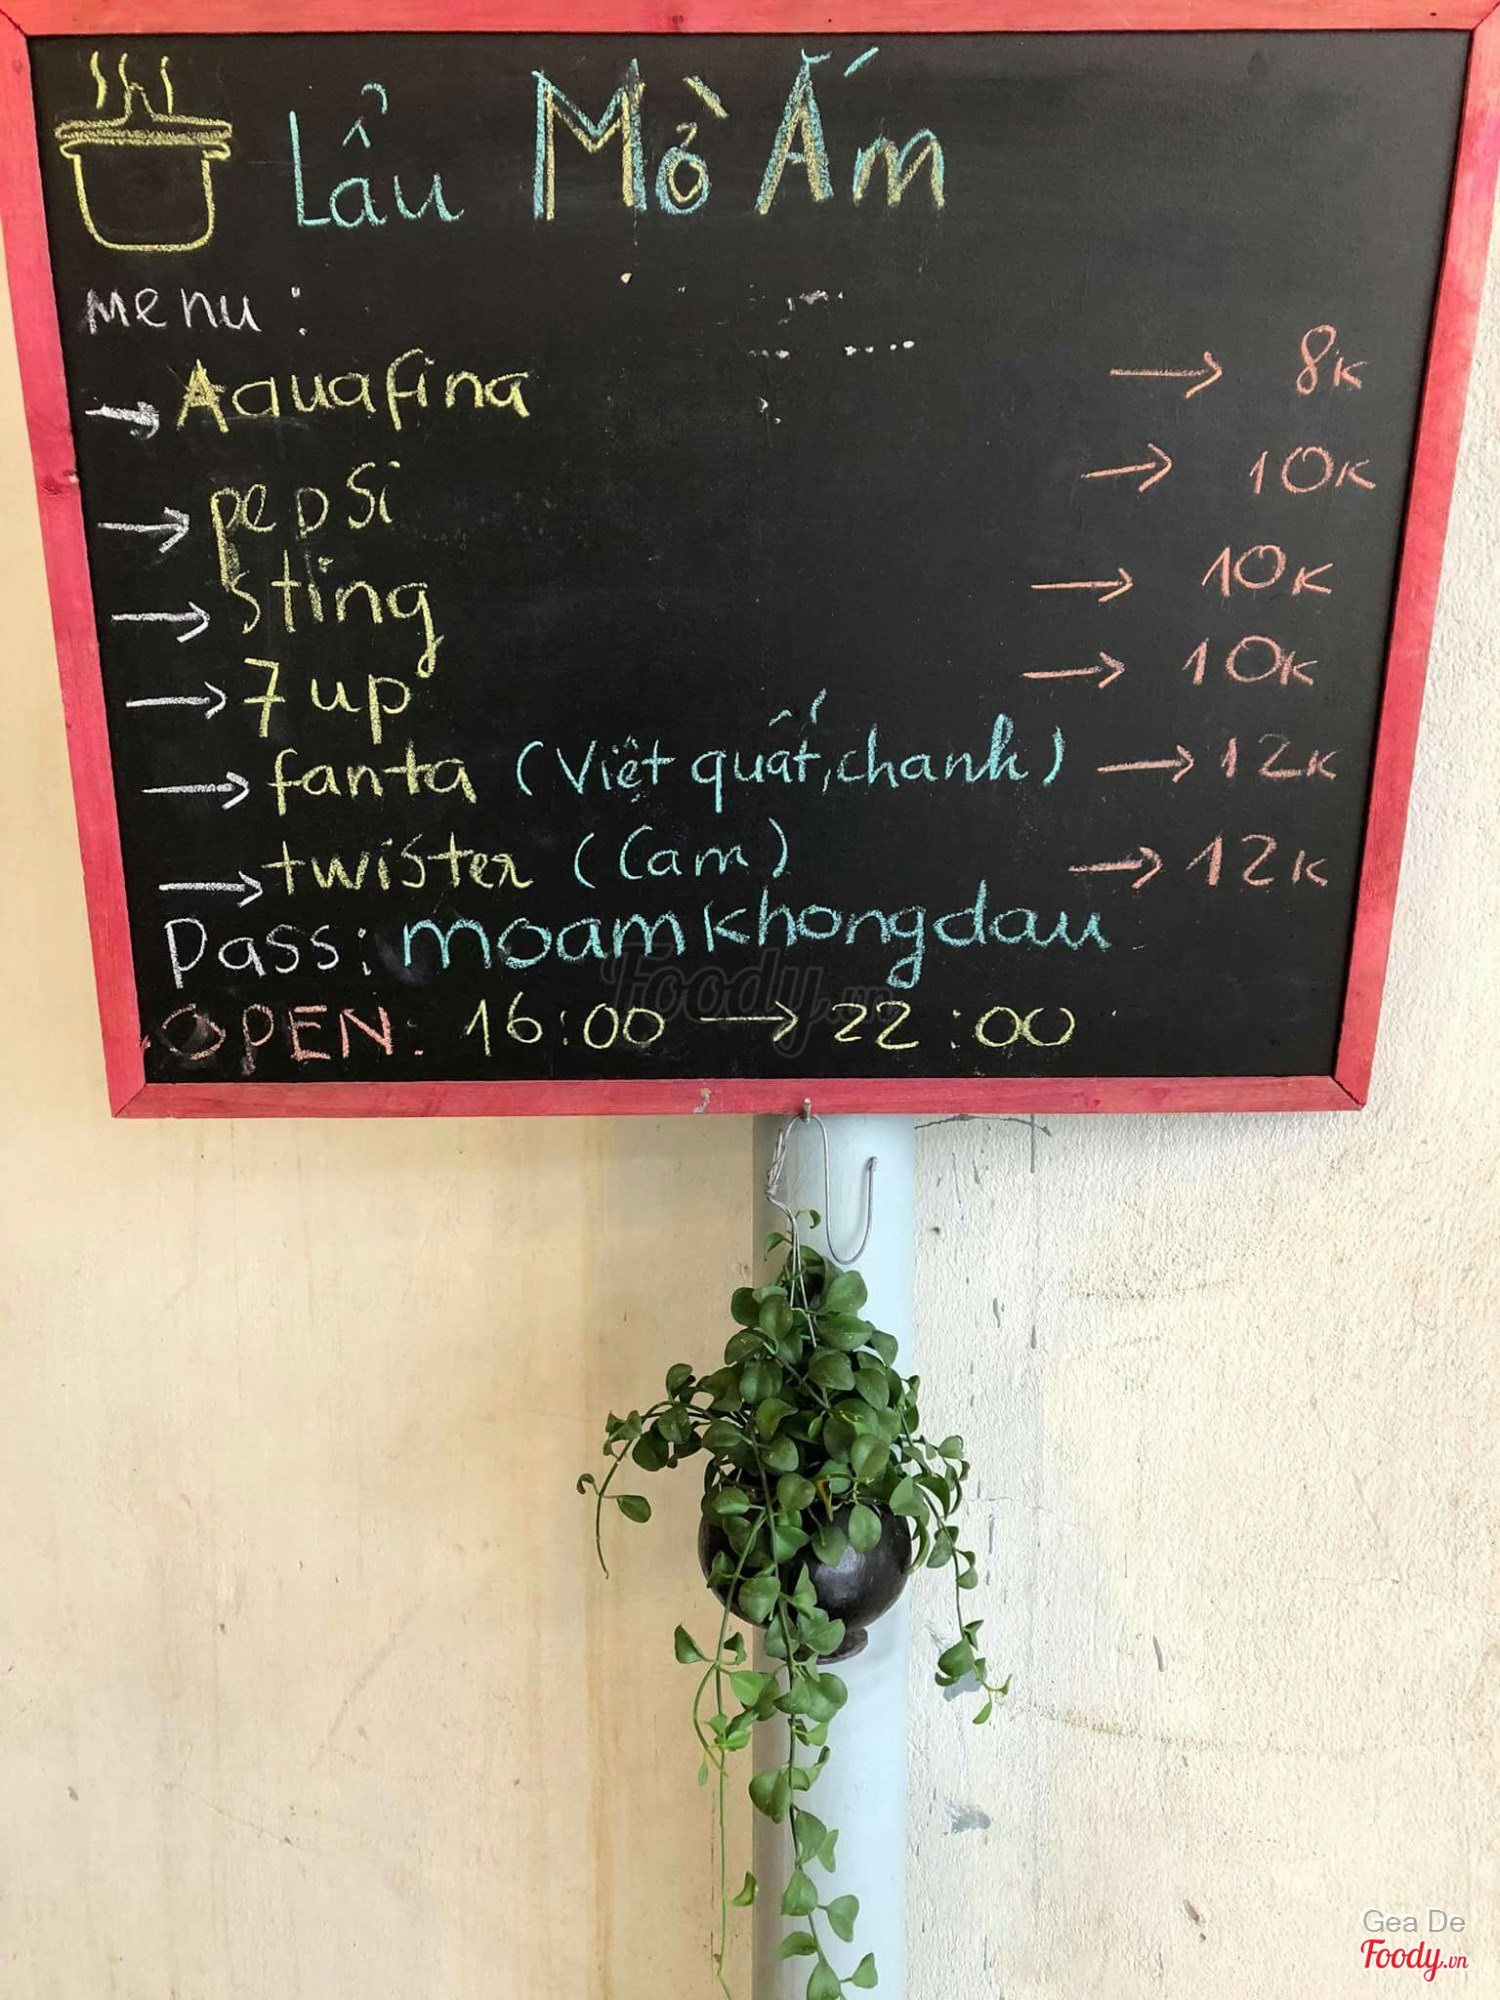 Lẩu Mỏ Ấm
Menu:
→ Aquafina → 8K
→ pepsi → 10K
→ sting → 10K
→ 7up → 10K
→ fanta (Việt quất, chanh) → 12K
→ twister (Cam) → 12K
Pass: moamkhongdau
OPEN: 16:00 → 22:00
Foody.vn
Gea De
Foody.vn